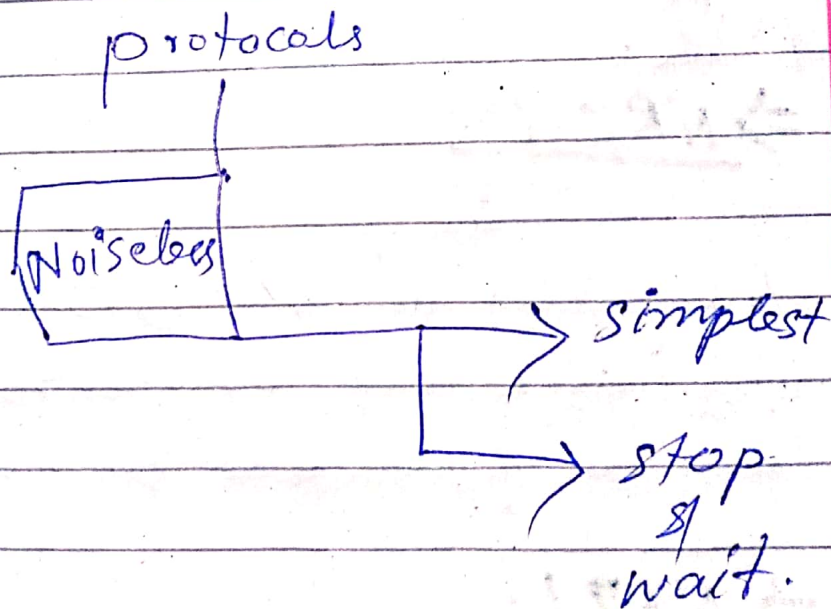 protocals
Noiseless
simplest
stop
&
wait.